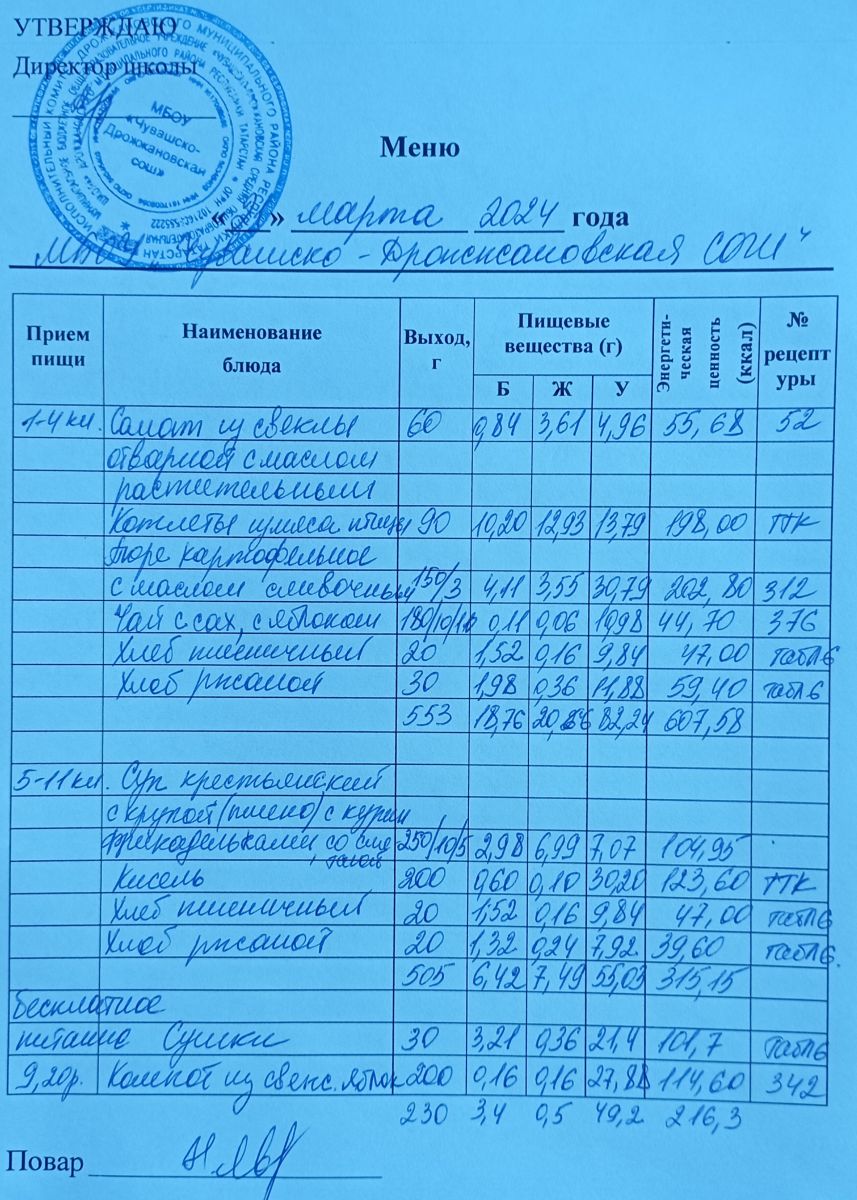 УТВЕРЖДАЮ
Директор школы
МБОУ
«Чувашско-
Дрожжановская
сош»
Меню
« » марта 2024 года
МБОУ „Чувашско - Дрожжановская СОШ"
Прием пищи Наименование блюда Выход, г Пищевые вещества (г) Энергетическая ценность (ккал) № рецептуры
Б Ж У
1-4 кл. Салат из свеклы 60 0,84 3,61 4,96 55,68 52
отварной с маслом
растительным
Котлеты из мяса птицы 90 10,20 12,93 13,79 198,00 ТТК
Пюре картофельное
с маслом сливочным 150/3 4,11 3,55 30,79 202,80 312
Чай с сах, с яблоком 180/10/10 0,11 0,06 10,98 44,70 376
Хлеб пшеничный 20 1,52 0,16 9,84 47,00 табл6
Хлеб ржаной 30 1,98 0,36 11,88 59,40 табл6
553 18,76 82,24 607,58
5-11 кл. Суп крестьянский
с крупой (пшено) с курин
фрикадельками со сме
таной 250/10/5 2,98 6,99 7,07 104,95
Кисель 200 0,60 0,10 30,20 123,60 ТТК
Хлеб пшеничный 20 1,52 0,16 9,84 47,00 табл6
Хлеб ржаной 20 1,32 0,24 7,92 39,60 табл6.
505 6,42 7,49 55,03 315,15
бесплатное
питание Сушки 30 3,21 0,36 21,4 101,7 табл6
9,20р. Компот из свеж. яблок 200 0,16 0,16 27,88 114,60 342
230 3,4 0,5 49,2 216,3
Повар